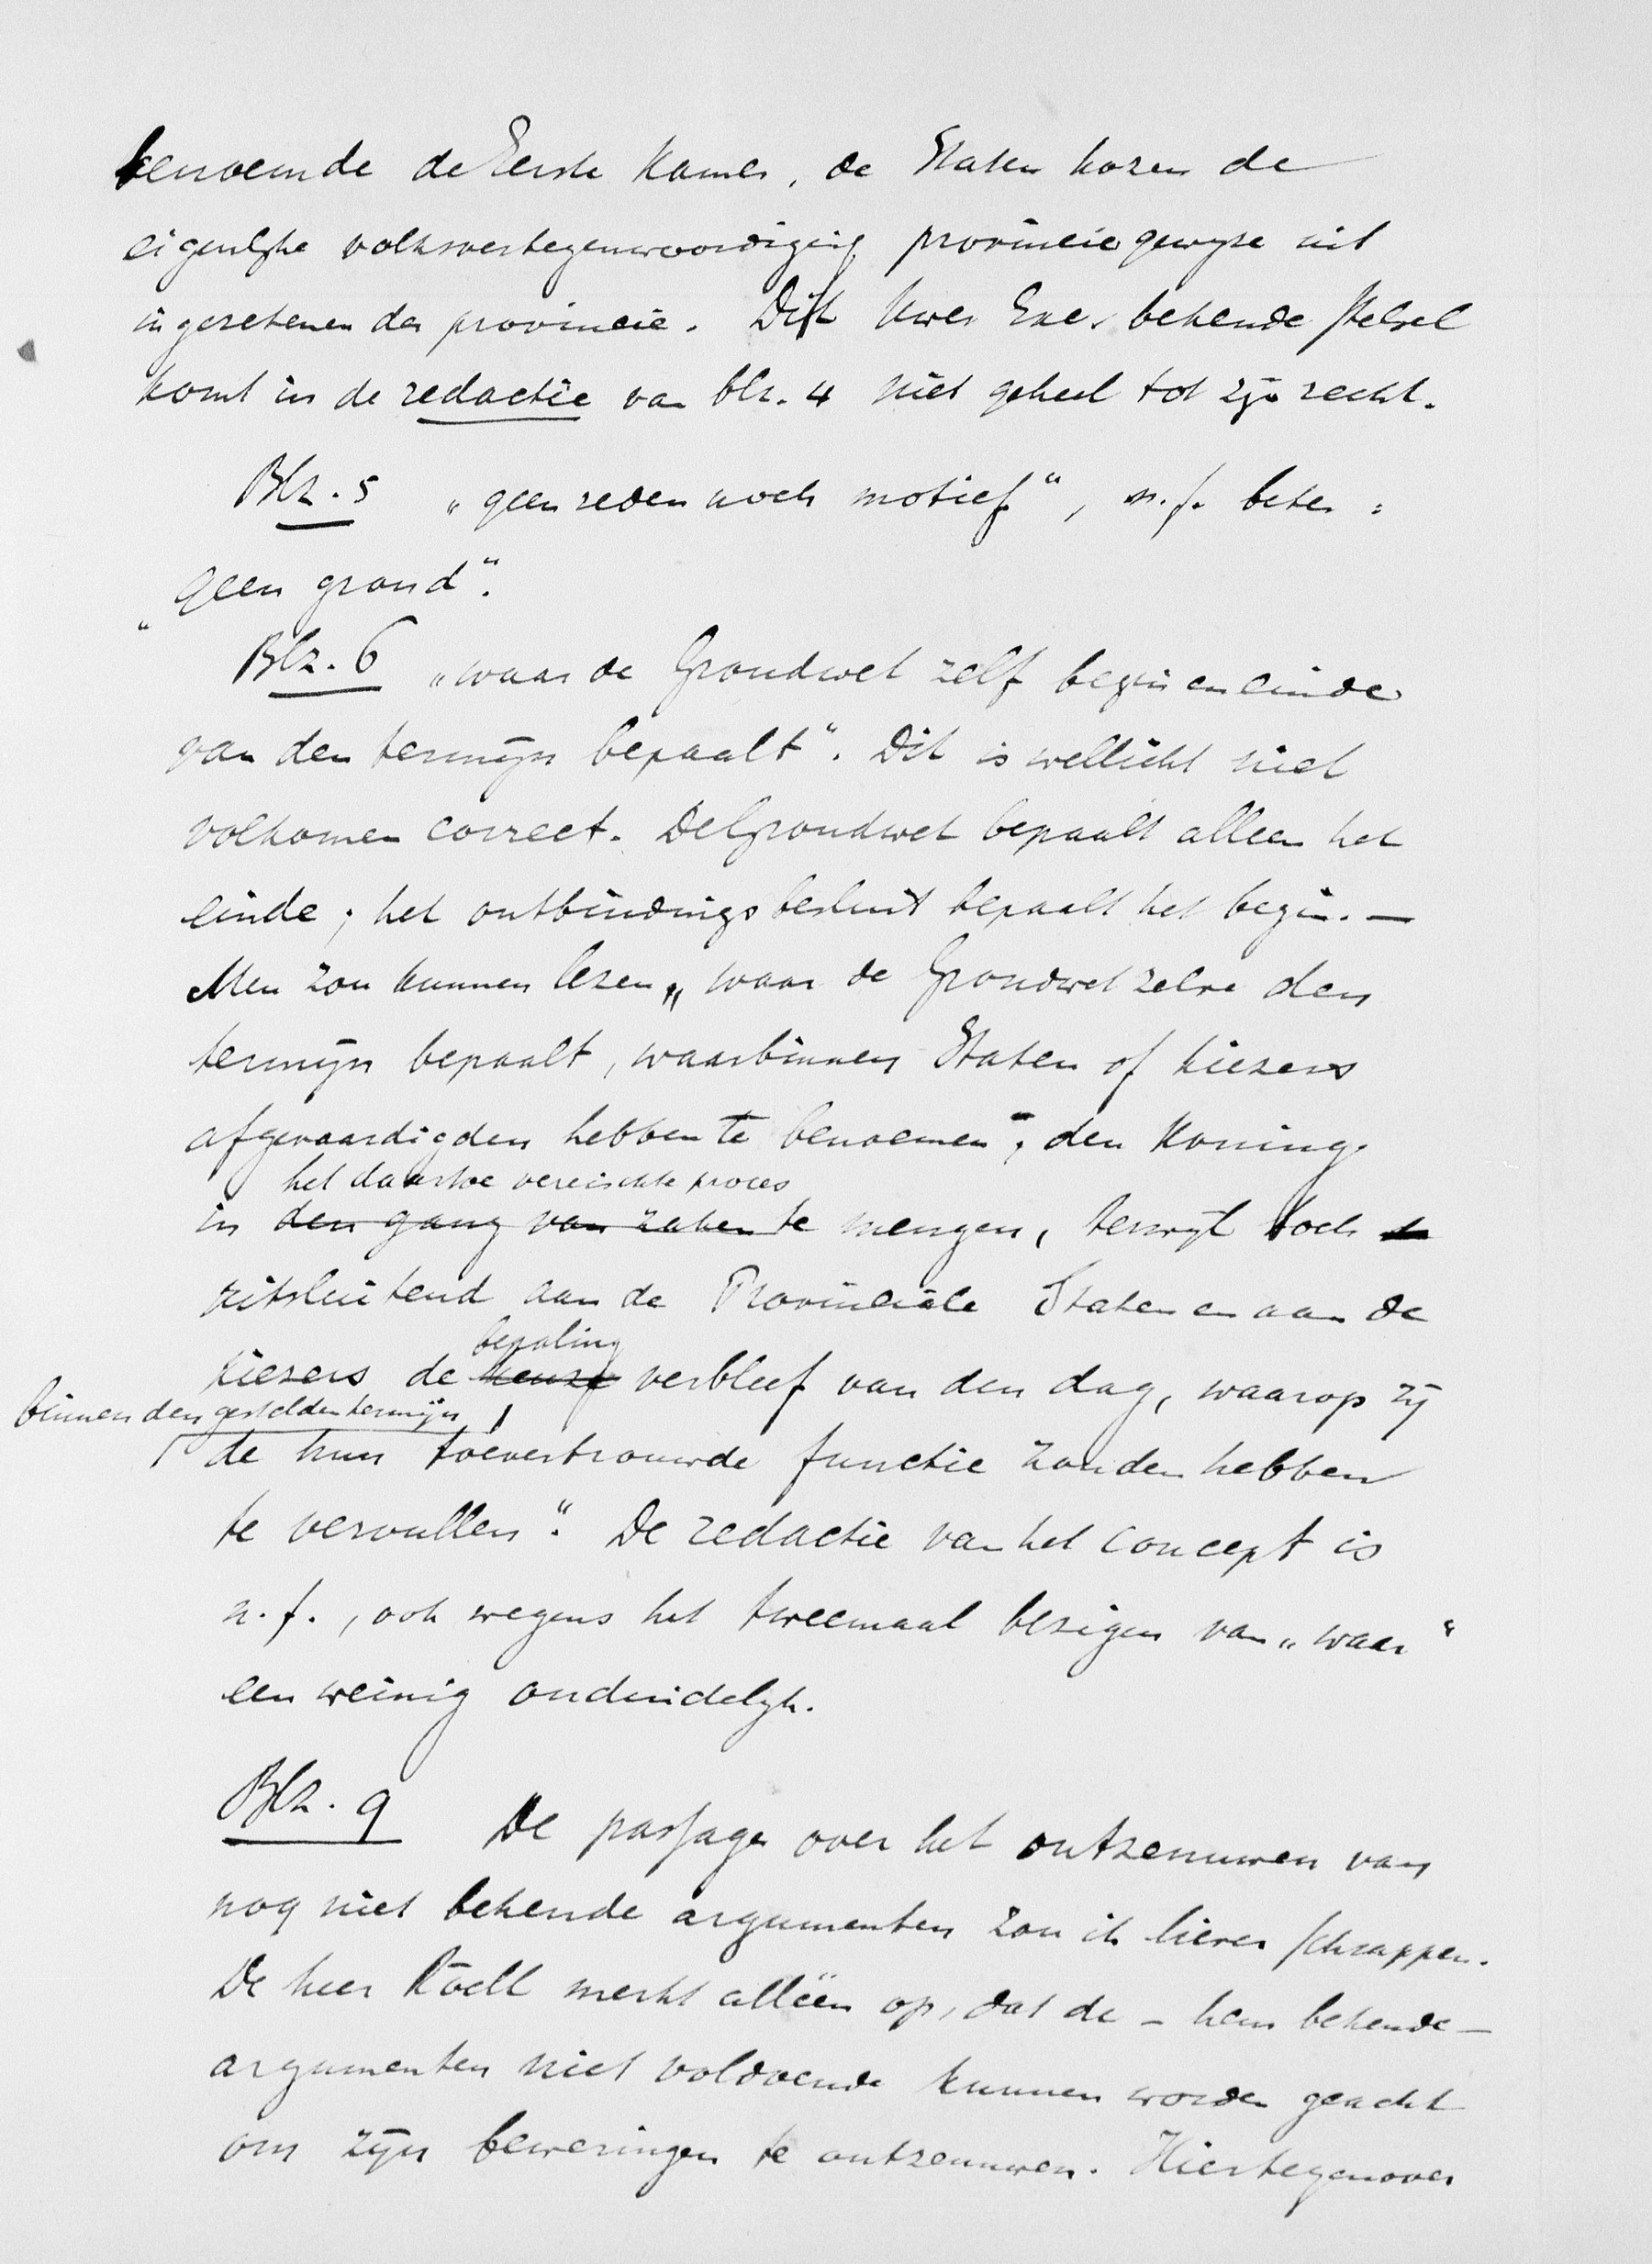 benoemde de Eerste Kamer, de Staten kozen de
eigenlijke volksvertegenwoordiging provinciegewijze uit
ingezetenen der provincie. Dit Uwer Exc. bekende stelsel
komt in de redactie van blz. 4 niet geheel tot zijn recht.
Blz. 5 „geen reden noch motief“, m.f. beter:
„geen grond“.
Blz. 6 „waar de Grondwet zelf begin en einde
van den termijn bepaalt“. Dit is wellicht niet
volkomen correct. De Grondwet bepaalt alleen het
einde; het ontbindingsbesluit bepaalt het begin. —
Men zou kunnen lezen „waar de Grondwet zelve den
termijn bepaalt, waarbinnen Staten of kiezers
afgevaardigden hebben te benoemen, den Koning
het daartoe vereischte proces
in den gang van zaken te mengen, terwijl toch
uitsluitend aan de Provinciale Staten en aan de
bepaling
kiezers de keuze verbleef van den dag, waarop zij
binnen den gestelden termijn
de hun toevertrouwde functie zouden hebben
te vervullen“. De redactie van het concept is
n.f., ook wegens het tweemaal bezigen van „waar“
een weinig onduidelijk.
Blz. 9 De passage over het ontzenuwen van
nog niet bekende argumenten zou ik liever schrappen.
De heer Röell merkt alléén op, dat de – hem bekende –
argumenten niet voldoende kunnen worden geacht
om zijn beweringen te ontzenuwen. Hiertegenover